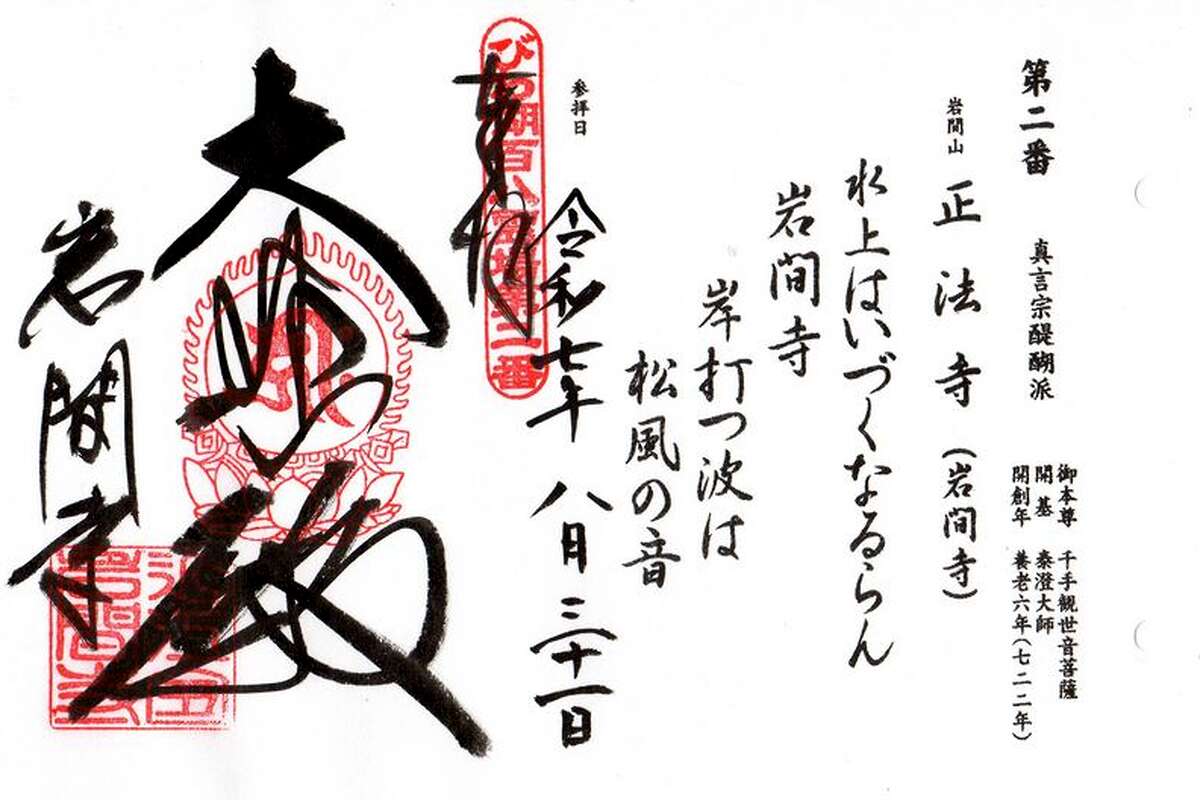 第二番 真言宗醍醐派
御本尊 千手観世音菩薩
開基 泰澄大師
開創年 養老六年(七二二年)
岩間山 正法寺(岩間寺)
水上はいづくなるらん
岩間寺
岸打つ波は
松風の音
参拝日 令和七年 八月 三十一日
びわ湖百八霊場第二番
奉拝
大悲殿
岩間寺